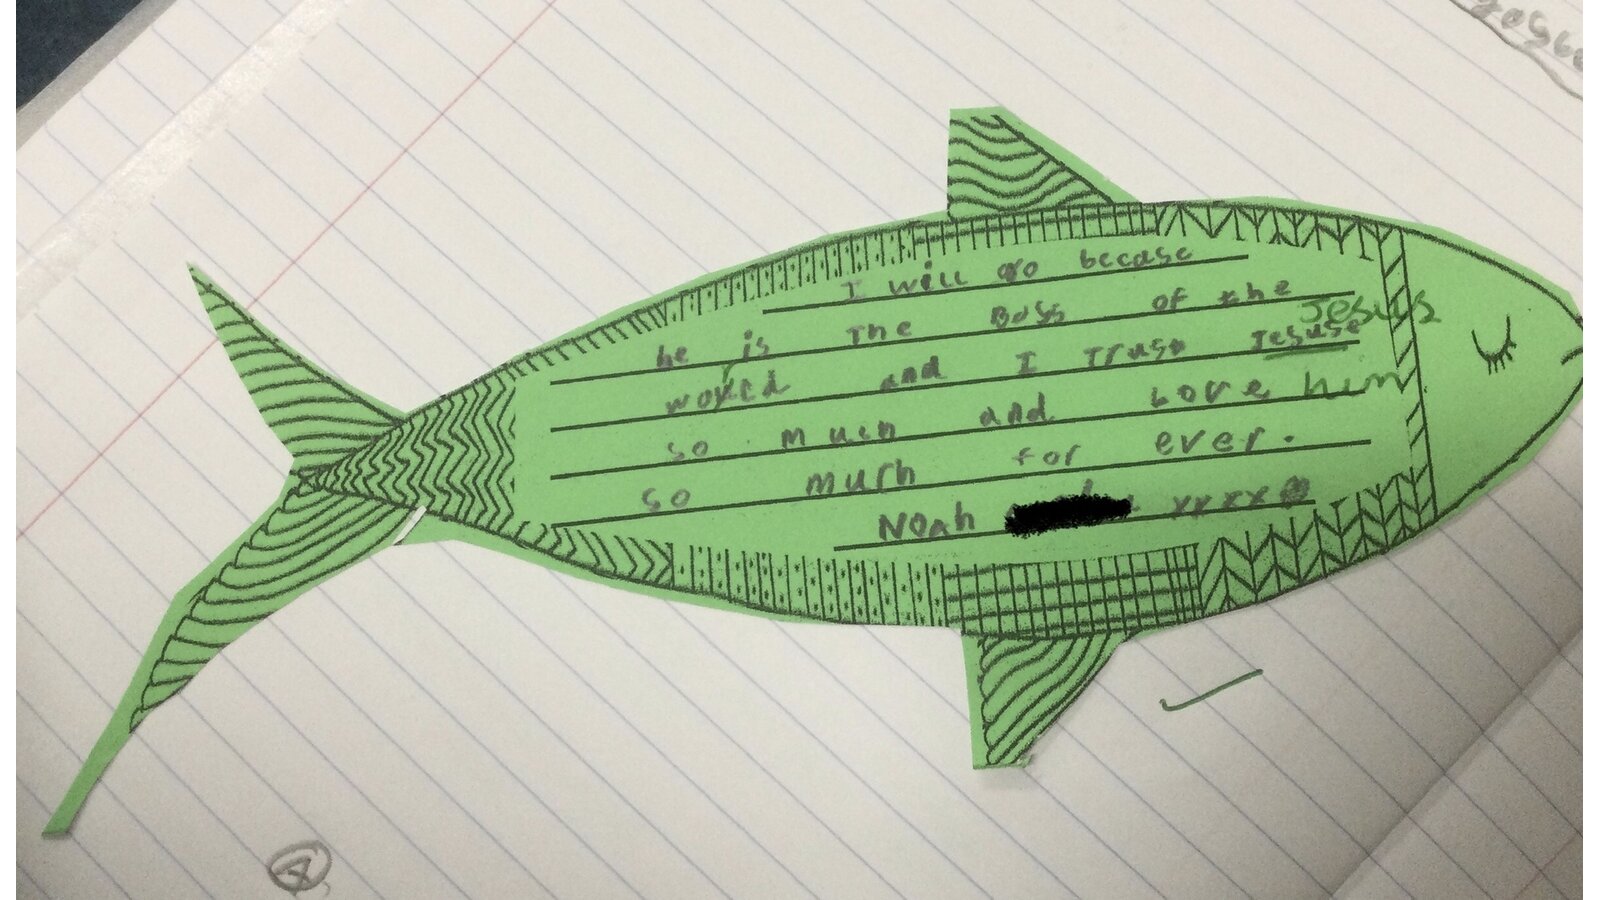 I will go becase
he is The Boss of the
world and I Trust Jesuse
Jesus
so much and Love him
so much for ever.
Noah xxxx